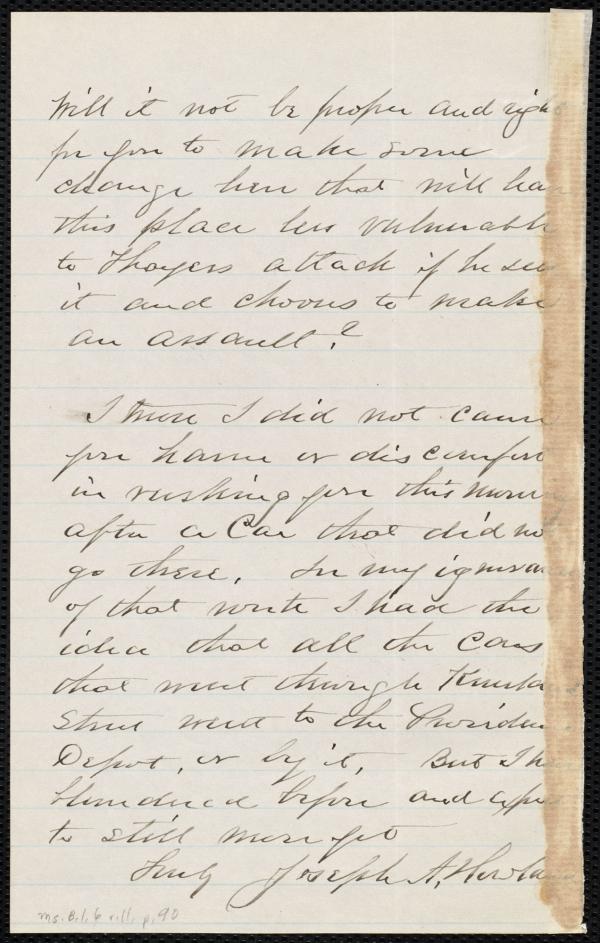 Will it not be proper and right
for you to make some
change here that will leave
this place less vulnerable
to Thayers attack if he sees
it and chooses to make
an assault?
I trust I did not cause
you harm or discomfort
in rushing you this morn
after a Car that did not
go there. In my ignorance
of that route I had the
idea that all the Cars
that went through Kneeland
Street went to the Providence
Depot, or by it. But I have
blundered before and expect
to still more yet
Truly Joseph A. Howland
ms. B.1.6 v.11, p.90